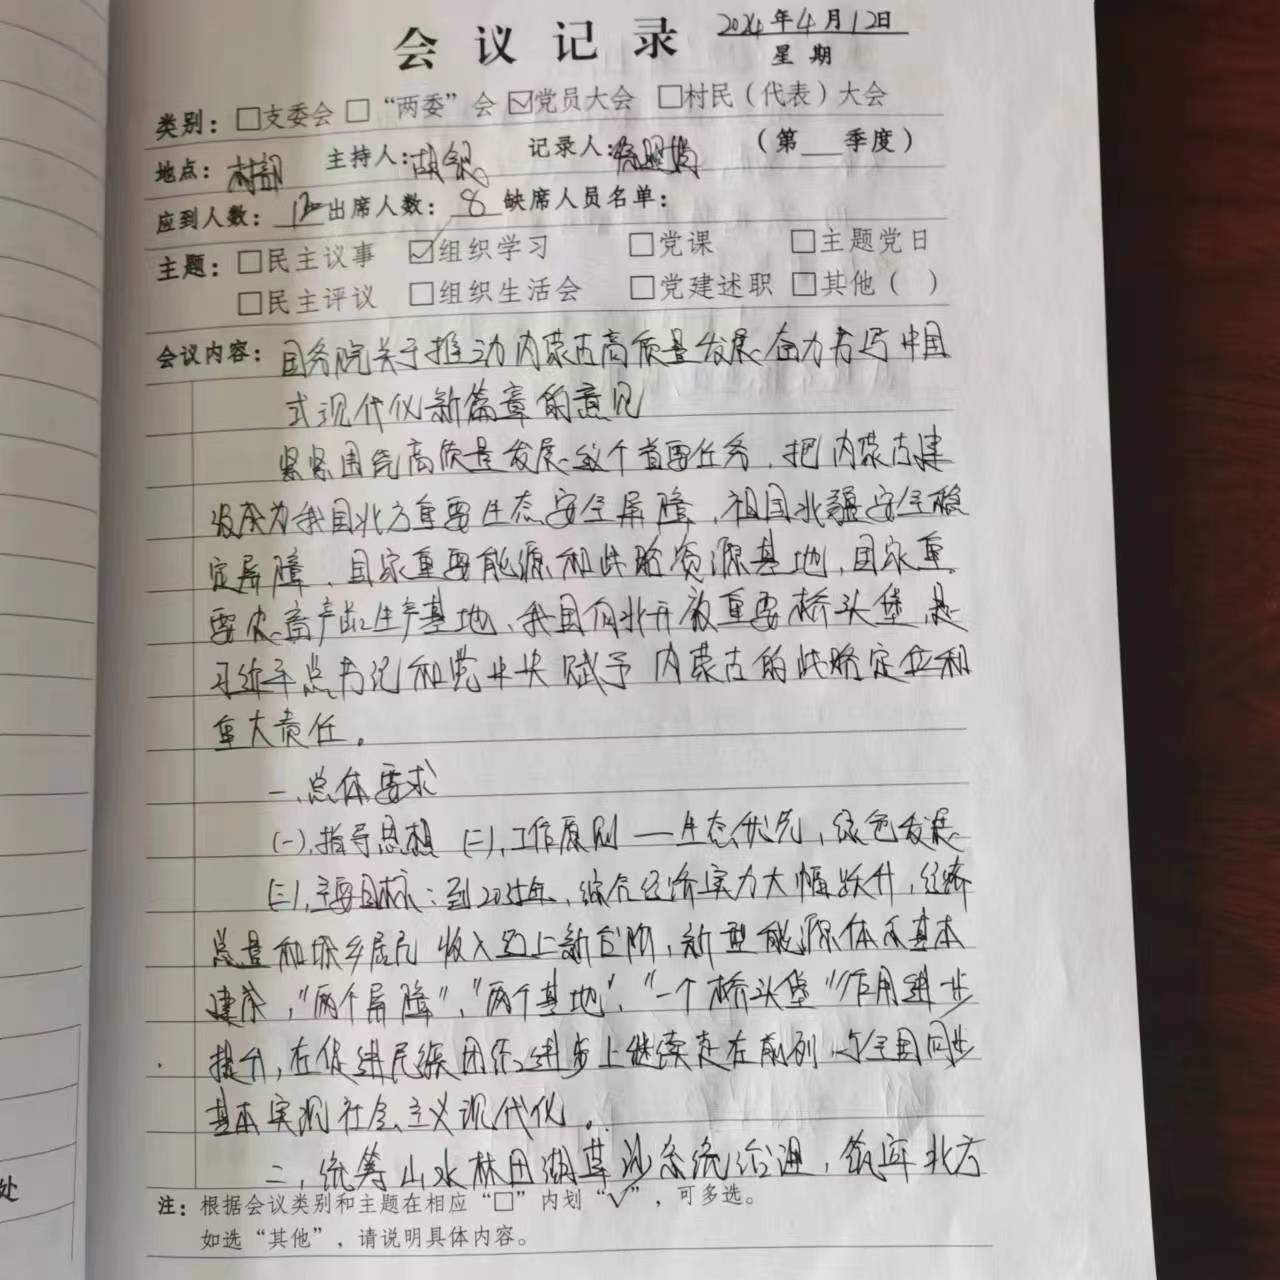 会议记录 2024年4月12日
星期
类别：□支委会 □“两委”会 ☑党员大会 □村民（代表）大会
地点：村部 主持人：胡 记录人： （第 季度）
应到人数：12 出席人数：8 缺席人员名单：
主题：□民主议事 ☑组织学习 □党课 □主题党日
□民主评议 □组织生活会 □党建述职 □其他（ ）
会议内容：国务院关于推动内蒙古高质量发展奋力书写中国
式现代化新篇章的意见
紧紧围绕高质量发展这个首要任务，把内蒙古建
设成为我国北方重要生态安全屏障，祖国北疆安全稳
定屏障，国家重要能源和战略资源基地，国家重
要农畜产品生产基地、我国向北开放重要桥头堡，是
习近平总书记和党中央赋予内蒙古的战略定位和
重大责任。
一、总体要求
（一）、指导思想（二）、工作原则——生态优先，绿色发展
（三）、主要目标：到20 年，综合经济实力大幅跃升，经济
总量和城乡居民收入迈上新台阶，新型能源体系基本
建成，“两个屏障”，“两个基地”，“一个桥头堡”作用进一步
提升，在促进民族团结进步上继续走在前列 与全国同步
基本实现社会主义现代化。
二、统筹山水林田湖草沙系统治理，筑牢北方
注：根据会议类别和主题在相应“□”内划“√”，可多选。
如选“其他”，请说明具体内容。
处